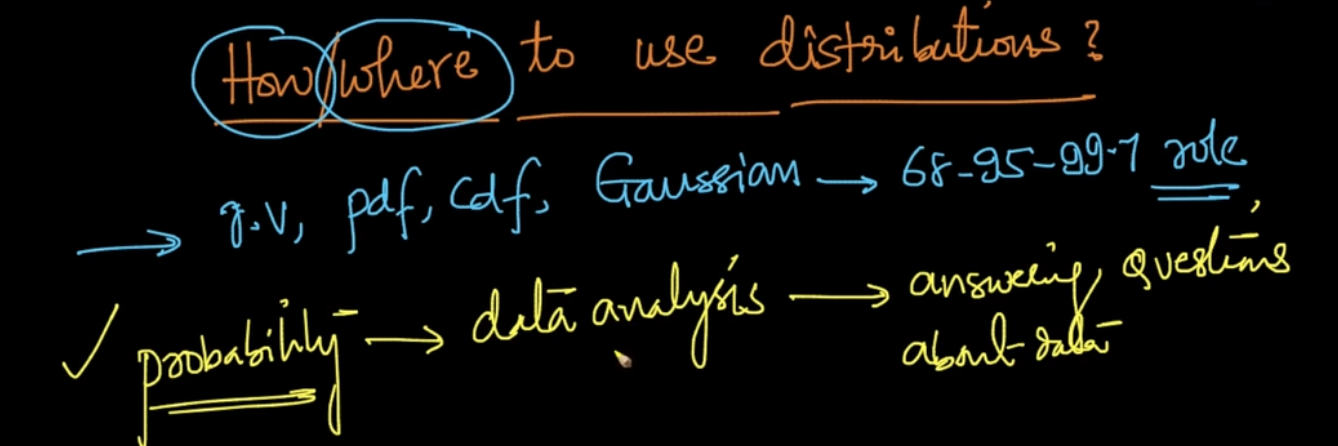 How/where to use distributions?
→ r.v, pdf, cdf, Gaussian → 68-95-99.7 rule,
✓ probability → data analysis → answering questions
about data